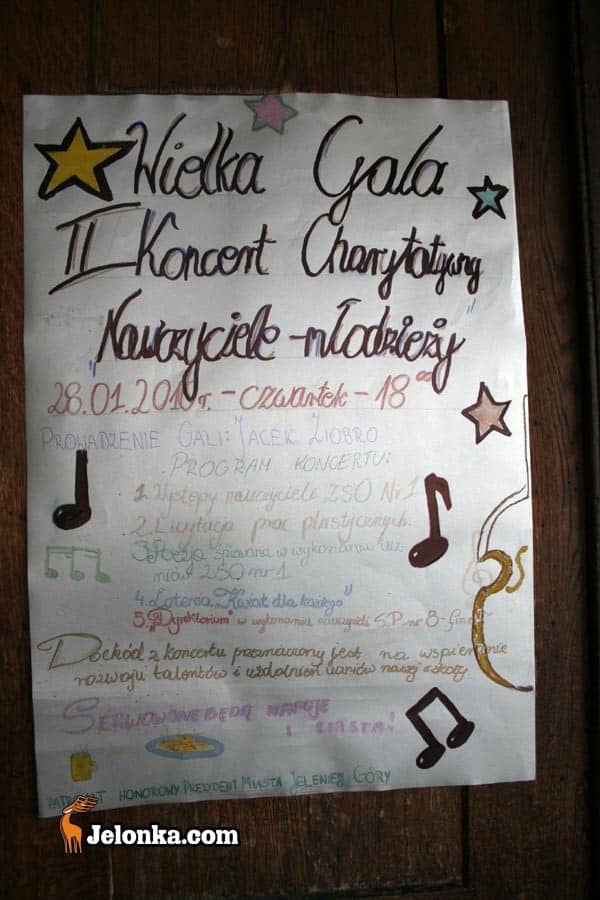 Wielka Gala
II Koncert Charytatywny
"Nauczyciele-młodzieży"
28.01.2010r. - czwartek - 18⁰⁰
PROWADZENIE GALI: JACEK ZIOBRO
PROGRAM KONCERTU:
1. Występy nauczycieli ZSO Nr 1
2. Licytacja prac plastycznych.
3. Poezja śpiewana w wykonaniu ucz-
niów ZSO nr 1
4. Loteria „Kwiat dla każdego"
5. „Dyrektorium" w wykonaniu nauczycieli S.P. nr 8-finał
Dochód z koncertu przeznaczony jest na wspieranie
rozwoju talentów i uzdolnień uczniów naszej szkoły.
SERWOWONE BĘDĄ NAPOJE
I CIASTA!
PATRONAT HONOROWY PREZYDENT MIASTA JELENIEJ GÓRY
Jelonka.com